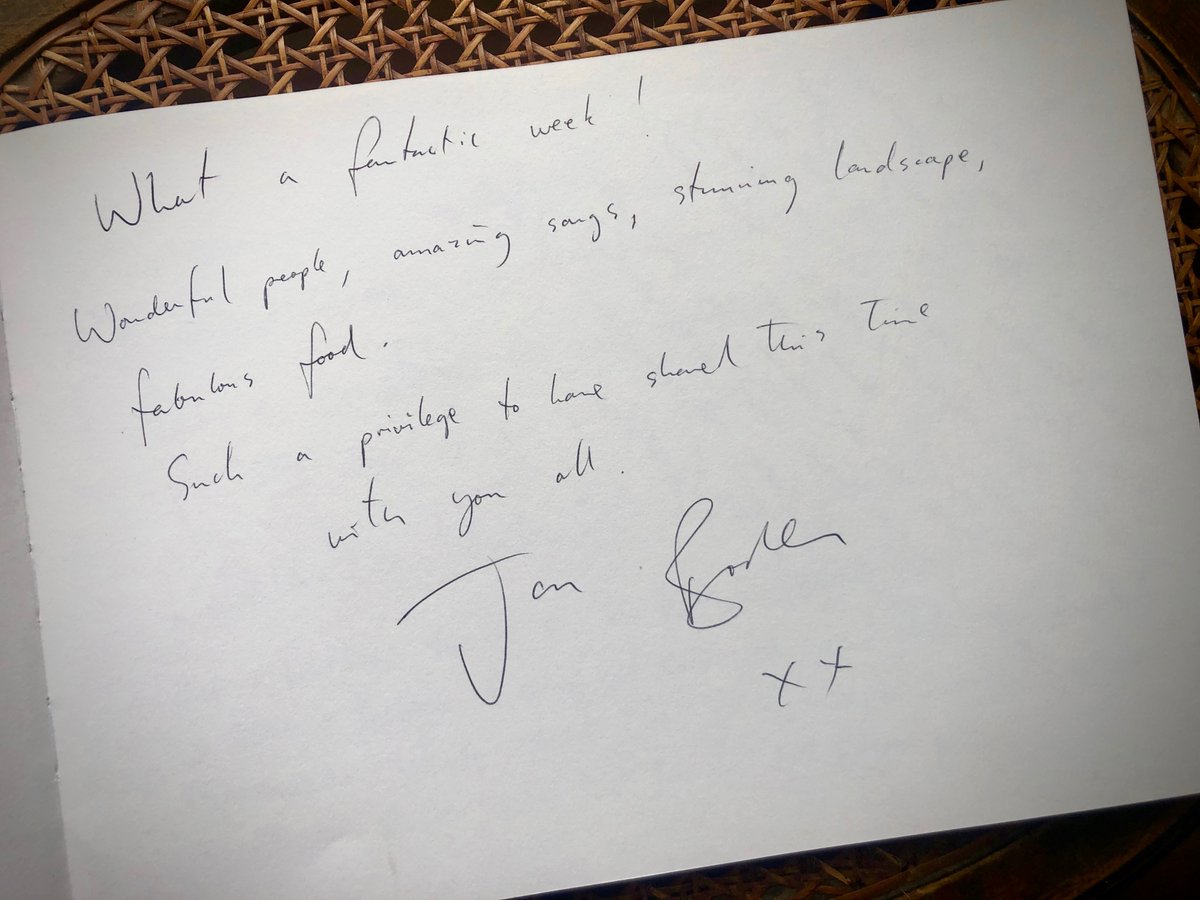 What a fantastic week!
Wonderful people, amazing songs, stunning landscape,
fabulous food.
Such a privilege to have shared this time
with you all.
Jon Boden
xx